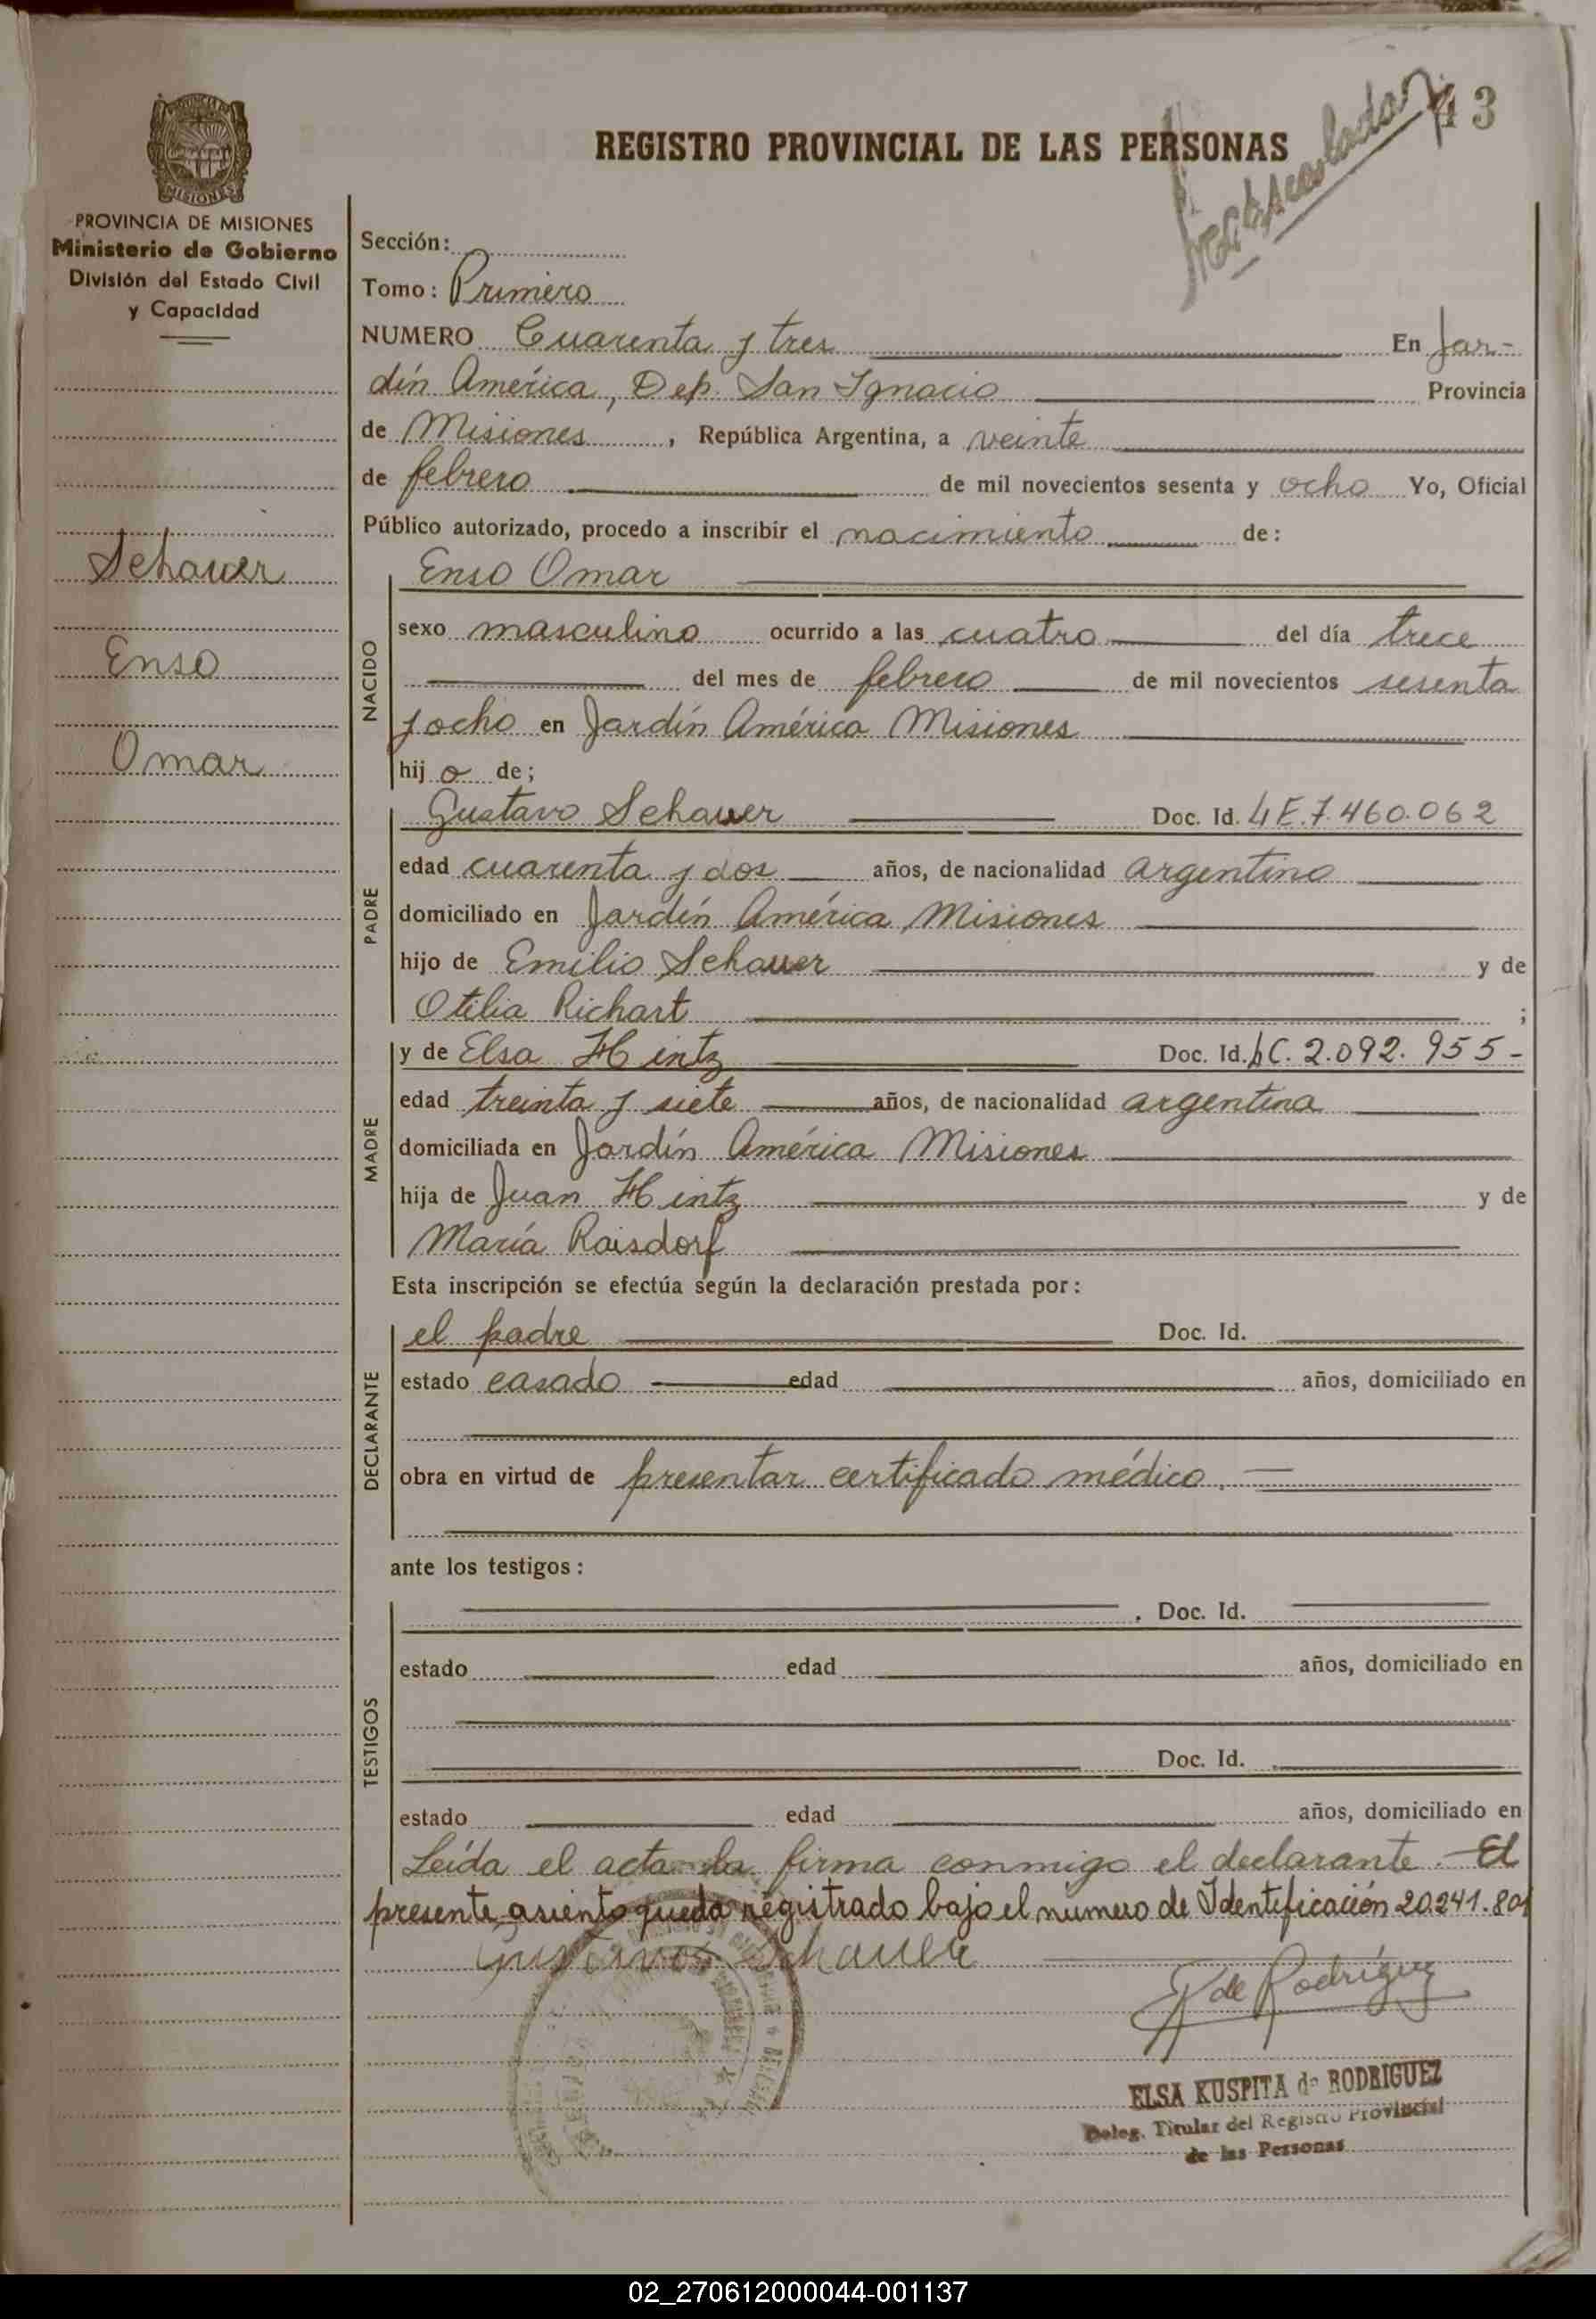 43
REGISTRO PROVINCIAL DE LAS PERSONAS
MISIONES
PROVINCIA DE MISIONES
Ministerio de Gobierno
División del Estado Civil
y Capacidad
Schauer
Enso
Omar
Sección:
Tomo: Primero
NUMERO Cuarenta y tres En Jar-
dín América, Dep. San Ignacio Provincia
de Misiones, República Argentina, a veinte
de febrero de mil novecientos sesenta y ocho Yo, Oficial
Público autorizado, procedo a inscribir el nacimiento de:
NACIDO
Enso Omar
sexo masculino ocurrido a las cuatro del día trece
del mes de febrero de mil novecientos sesenta
y ocho en Jardín América Misiones
hijo de;
PADRE
Gustavo Schauer Doc. Id. LE.7.460.062
edad cuarenta y dos años, de nacionalidad argentino
domiciliado en Jardín América Misiones
hijo de Emilio Schauer y de
Otilia Richart ;
MADRE
y de Elsa Hintz Doc. Id. LC. 2.092.955-
edad treinta y siete años, de nacionalidad argentina
domiciliada en Jardín América Misiones
hija de Juan Hintz y de
María Raisdorf
Esta inscripción se efectúa según la declaración prestada por:
DECLARANTE
el padre Doc. Id.
estado casado edad años, domiciliado en
obra en virtud de presentar certificado médico.
ante los testigos:
TESTIGOS
, Doc. Id.
estado edad años, domiciliado en
Doc. Id.
estado edad años, domiciliado en
Leída el acta la firma conmigo el declarante. El
presente asiento queda registrado bajo el número de Identificación 20.241.801
Gustavo Schauer
E K de Rodríguez
ELSA KUSPITA de RODRIGUEZ
Deleg. Titular del Registro Provincial
de las Personas
02_270612000044-001137